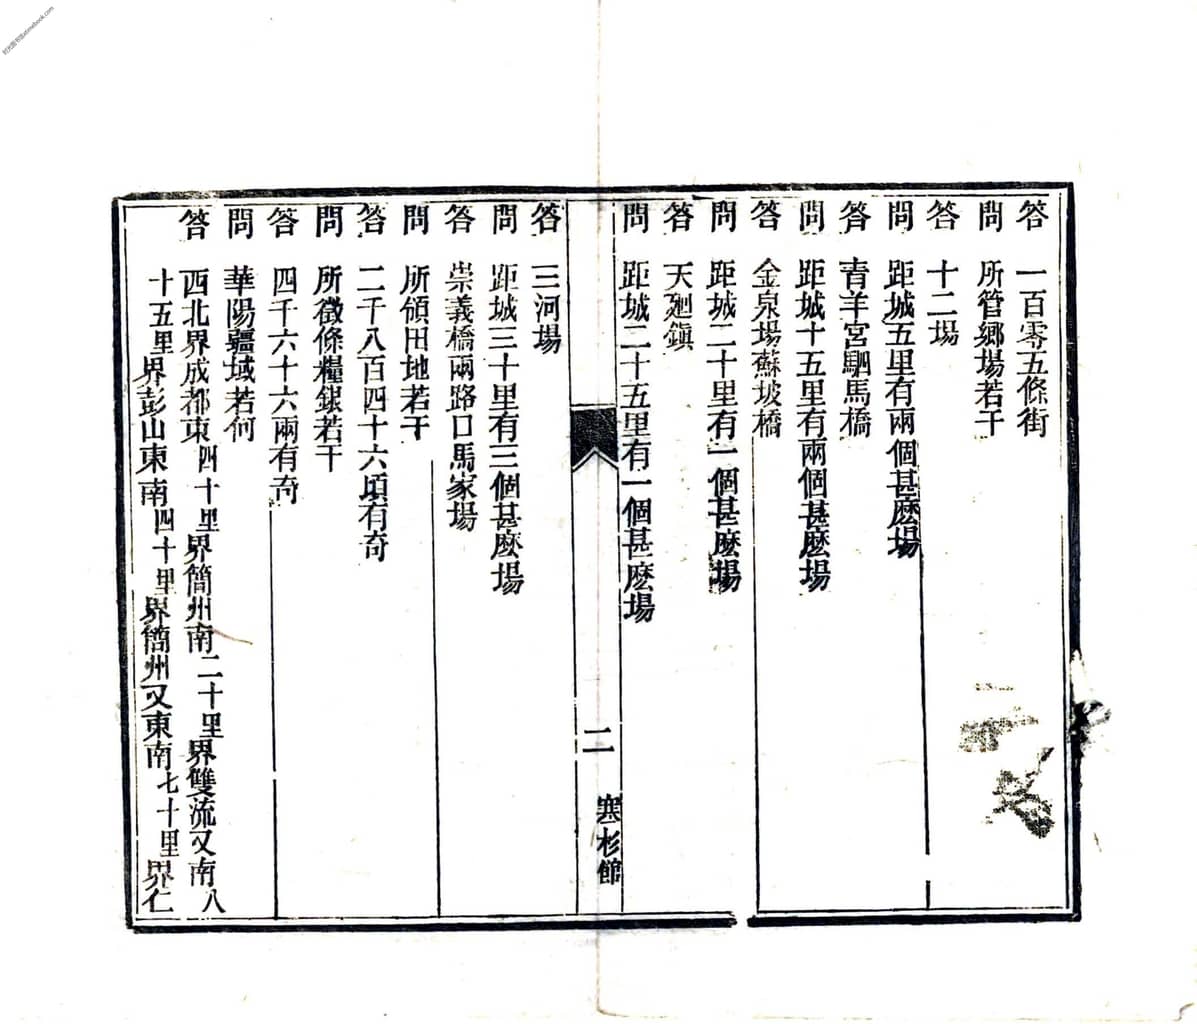 答 一百零五條街
問 所管鄉場若干
答 十二場
問 距城五里有兩個甚麽場
答 青羊宮駟馬橋
問 距城十五里有兩個甚麽場
答 金泉場蘇坡橋
問 距城二十里有一個甚麽場
答 天廻鎭
問 距城二十五里有一個甚麽場
二 寒杉館
答 三河場
問 距城三十里有三個甚麽場
答 崇義橋兩路口馬家場
問 所領田地若干
答 二千八百四十六頃有奇
問 所徵條糧銀若干
答 四千六十六兩有奇
問 華陽疆域若何
答 西北界成都東四十里界簡州南二十里界雙流又南八
十五里界彭山東南四十里界簡州又東南七十里界仁
时光图书馆atimebook.com